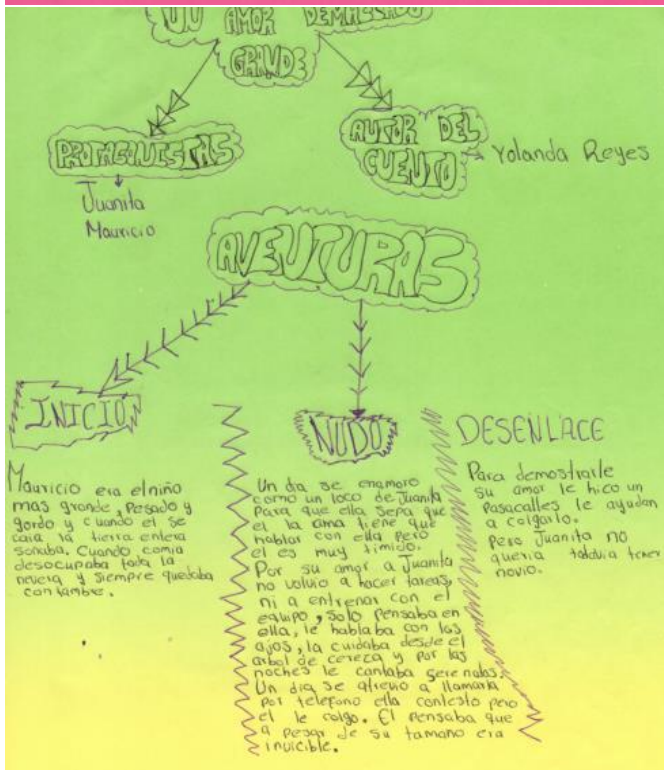 UN AMOR DEMACIADO
GRANDE
PROTAGONISTAS
Juanita
Mauricio
AUTOR DEL
CUENTO
Yolanda Reyes
AVENTURAS
INICIO
Mauricio era elniño
mas grande, Pesado y
gordo y cuando el se
caia la tierra entera
sonaba. Cuando comia
desocupaba toda la
nevera y siempre quedaba
con ambre.
NUDO
Un dia se enamoro
como un loco de Juanita
Para que ella sepa que
el la ama tiene que
hablar con ella pero
el es muy timido.
Por su amor a Juanita
no volvio a hacer tareas,
ni a entrenar con el
equipo, solo pensaba en
ella, le hablaba con los
ojos, la cuidaba desde el
arbol de cereza y por las
noches le cantaba serenatas.
Un dia se atrevio a llamarla
por telefono ella contesto pero
el le colgo. El pensaba que
a pesar de su tamano era
invicible.
DESENLACE
Para demostrarle
su amor le hico un
Pasacalles le ayudan
a colgarlo.
pero Juanita no
queria taldvia tener
novio.